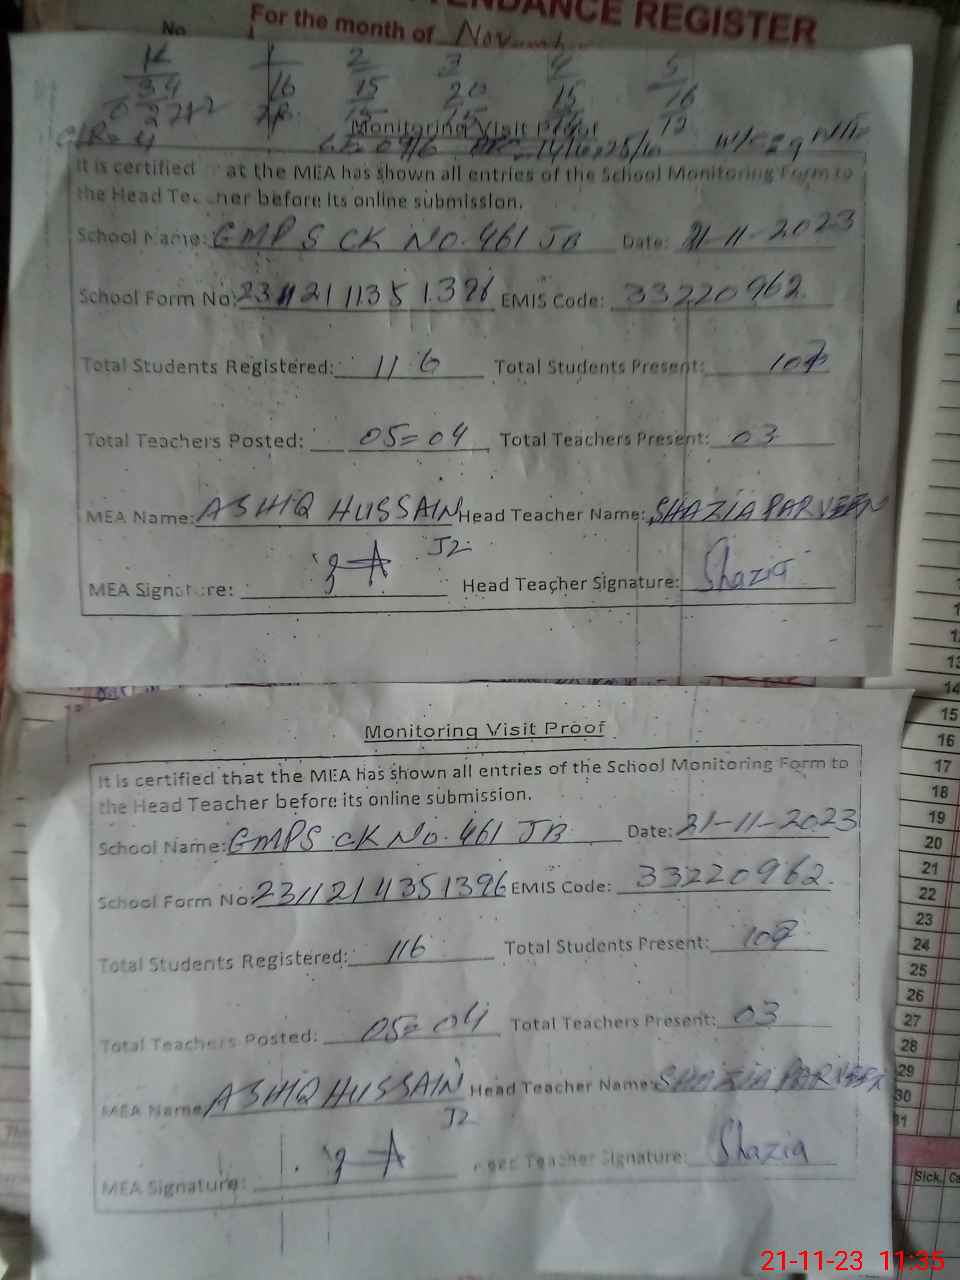 ATTENDANCE REGISTER
No
For the month of November
K 1 2 3 4 5
34 16 15 20 15 16
12
C/R= 4
Monitoring Visit Proof
It is certified at the MEA has shown all entries of the School Monitoring Form to
the Head Teacher before its online submission.
School Name: GMPS CK No. 461 JB Date: 21-11-2023
School Form No: 231121 1135 1396 EMIS Code: 33220962
Total Students Registered: 116 Total Students Present:
Total Teachers Posted: 05=04 Total Teachers Present: 03
MEA Name: ASHIQ HUSSAIN Head Teacher Name: SHAZIA PARVEEN
J2
MEA Signature: Head Teacher Signature: Shazia
Monitoring Visit Proof
It is certified that the MEA has shown all entries of the School Monitoring Form to
the Head Teacher before its online submission.
School Name: GMPS CK No. 461 JB Date: 21-11-2023
School Form No: 2311211351396 EMIS Code: 33220962
Total Students Registered: 116 Total Students Present:
Total Teachers Posted: 05=04 Total Teachers Present: 03
MEA Name ASHIQ HUSSAIN Head Teacher Name: SHAZIA PARVEEN
J2
MEA Signature: Head Teacher Signature: Shazia
13
14
15
16
17
18
19
20
21
22
23
24
25
26
27
28
29
30
31
Sick.
21-11-23 11:35